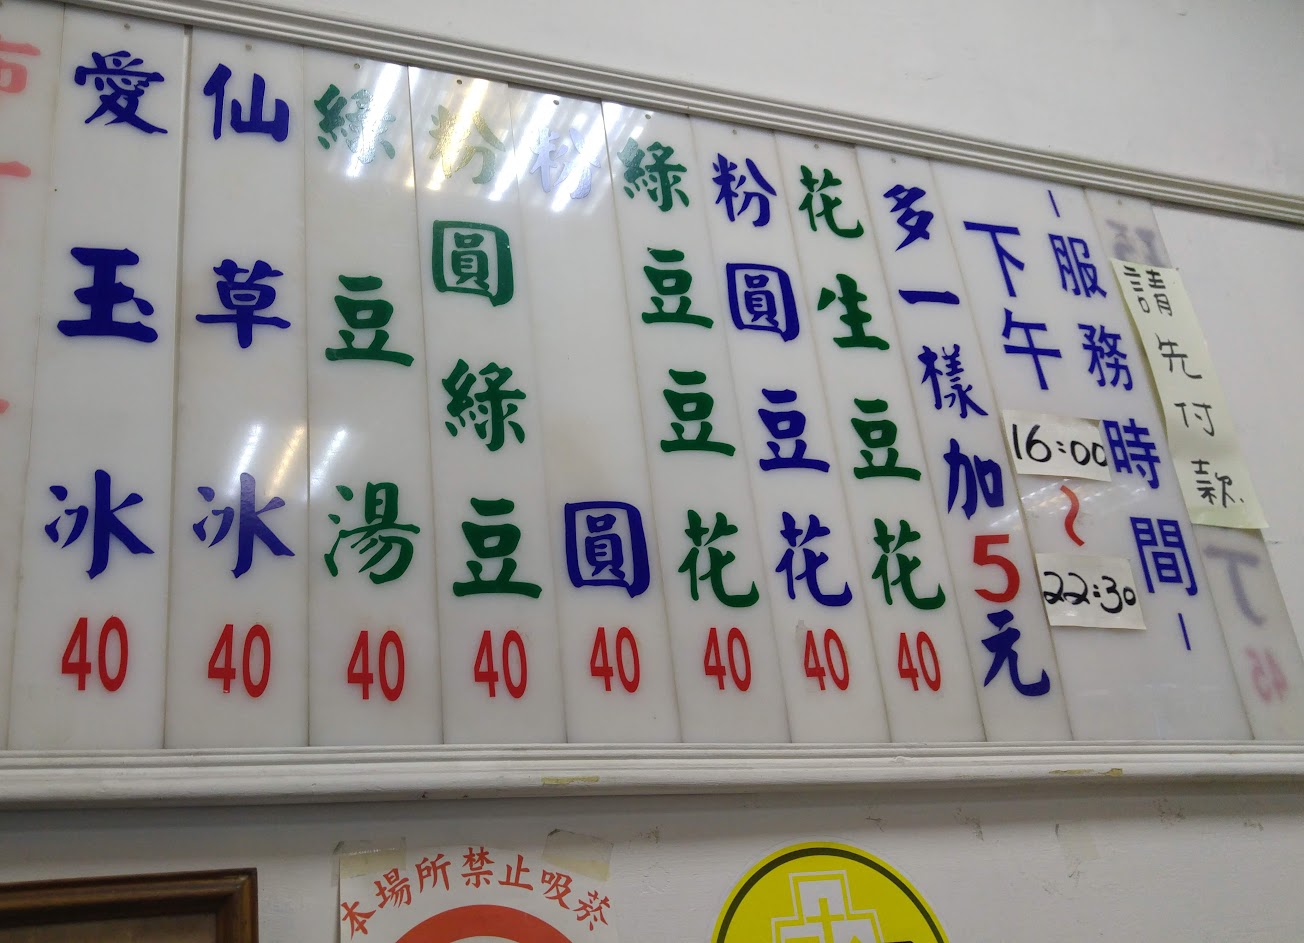 請先付款
－服務時間－
下午
16:00
～
22:30
多一樣加5元
花生豆花 40
粉圓豆花 40
綠豆豆花 40
粉圓 40
粉圓綠豆 40
綠豆湯 40
仙草冰 40
愛玉冰 40
本場所禁止吸菸